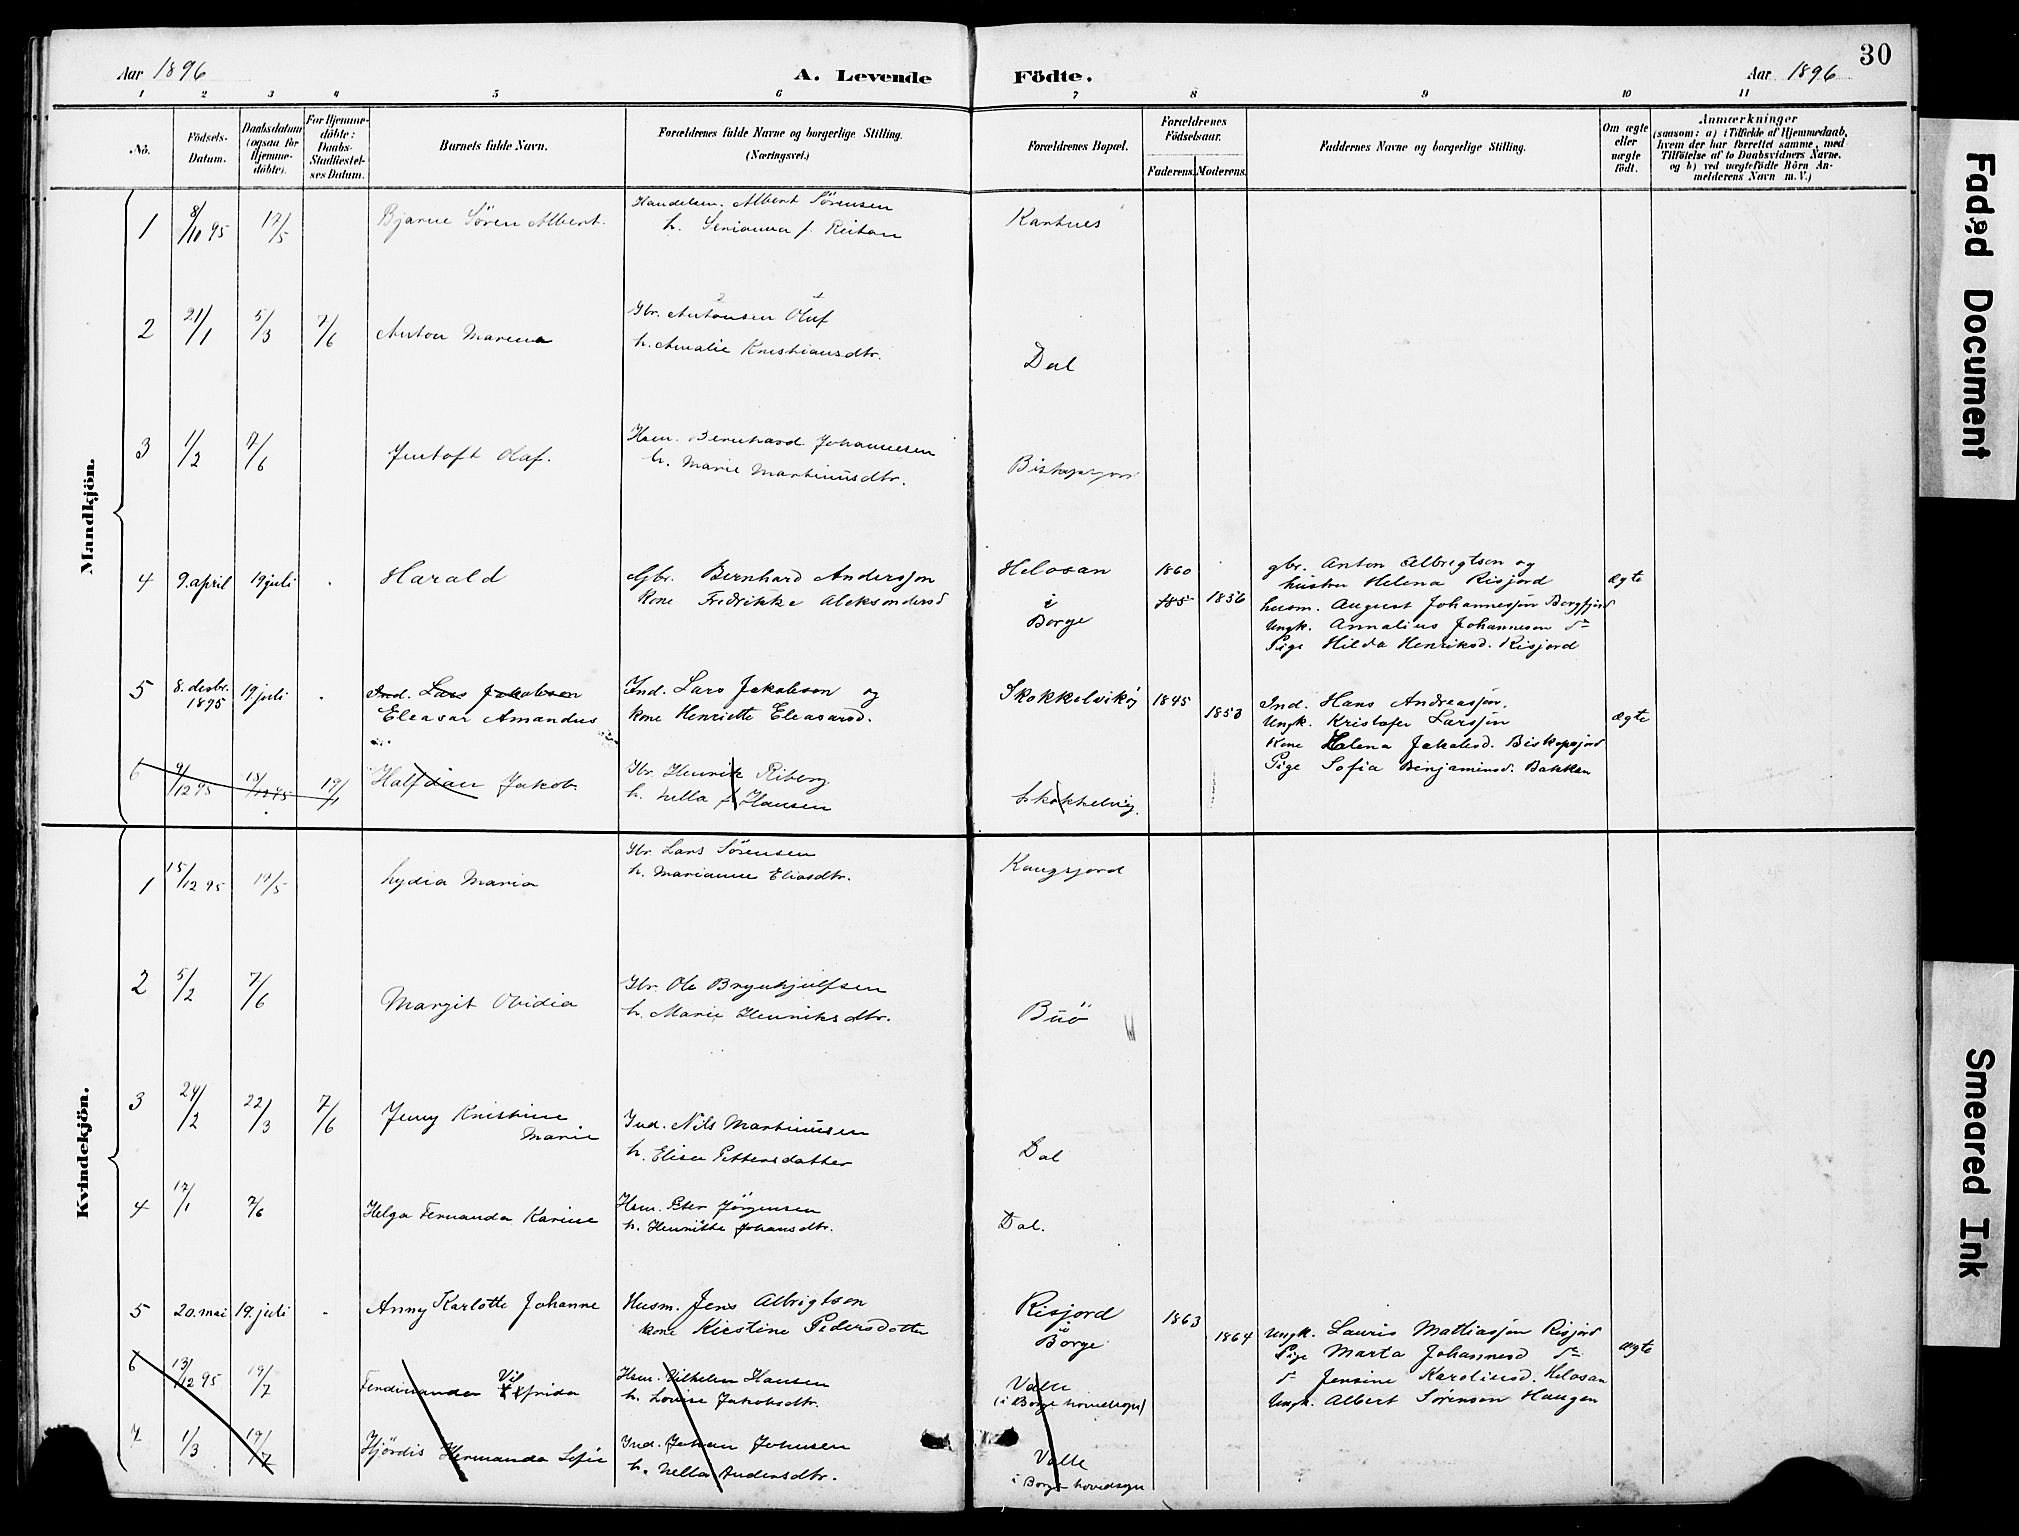 Aar 1896
A. Levende
Födte.
Aar 1896
30
1 2 3 4 5 6 7 8 9 10 11
No.
Födsels-
Datum.
Daabsdatum
(ogsaa for
Hjemme-
döbte).
For Hjemme-
döbte:
Daabs-
Stadfæstel-
ses Datum.
Barnets fulde Navn.
Forældrenes fulde Navne og borgerlige Stilling.
(Næringsvei.)
Forældrenes Bopæl.
Forældrenes
Födselsaar.
Faderens. Moderens.
Faddernes Navne og borgerlige Stilling.
Om ægte
eller
uægte
födt.
Anmærkninger
(saasom: a) i Tilfælde af Hjemmedaab,
hvem der har forrettet samme, med
Tilföielse af to Daabsvidners Navne.
og b) ved uægtefödte Börn An-
melderens Navn m. V.)
Mandkjön.
1 8/10 95 17/5 Bjarne Sören Albert. Handelsm. Albert Sörensen
h. f. Reitan
2 21/1 5/3 7/6 Anton Marena Gbr. Antonsen Oluf
h. Amalie Kristiansdtr.
Dal
3 1/2 7/6 Jentoft Olaf. Hsm. Bernhard Johannesen
h. Marie Martinusdtr.
4 9. april 19 juli - Harald Gbr. Bernhard Andersjon
Kone Fredrikke Aleksandersd
Helosan
i
Borge
1860
185 1856
gbr. Anton Albregtson og
hustru Helena Risjord
husm. August Johannesjon Borgfjord
Ungk. Annalius Johanneson do
Pige Hilda Henriksd. Risjord
ægte
5 8. desbr.
1895 19 juli - Ind. Lars Jakobson
Eleasar Amandus
Ind. Lars Jakobson og
kone Henriette Eleasarsd.
Skokkelvikøj
1845
1853
Ind. Hans Andreasjon.
Ungk. Kristofer Larsjon
Kone Helena Jakobsd. Biskopsjord
Pige Sofia Benjaminsd. Bakken
ægte
6 9/12 95 13/12 95 19/1 Halfdan Jakob Gbr. Henrik Riberg
h. Nella f. Hansen
Skokkelvig.
Kvindekjön.
1 15/12 95 17/5 Lydia Maria Gbr. Lars Sörensen
h. Marianne Eliasdtr.
Kangsjord
2 5/2 7/6 Margit Ovidia Gbr. Ole Brynhjulfsen
h. Marie Henriksdtr.
Buö
3 24/2 22/3 7/6 Jenny Kristine
Marie
Ind. Nils Martinusen
h. Elise Pettersdatter
Dal
4 17/1 7/6 Helga Fernanda Karine Hsm. Peter Jörgensen
h. Henritte Johansdtr.
Dal.
5 20. mai 19. juli - Anny Karlotte Johanne Husm. Jens Albrigtson
kone Kiestine Pedersdotter
Risjord
i
Borge
1863
1864
Ungk. Lauris Mathiasjon Risjord
Pige Marta Johannesd do
do Jensine Karolinsd. Helosan
Ungk. Albert Sørenson Haugen
ægte
6 13/12 95 19/7 Ferdinanda Vilfrida Hsm. Vilhelm Hansen
h. Lovise Jakobsdtr.
Valle
(i Borge hovedsogn)
7 1/3 19/7 Hjördis Hermanda Sofie Ind. Johan Johnsen
h. Nella Andersdtr.
Valle
i Borge hovedsogn
Faded Document
Smeared Ink